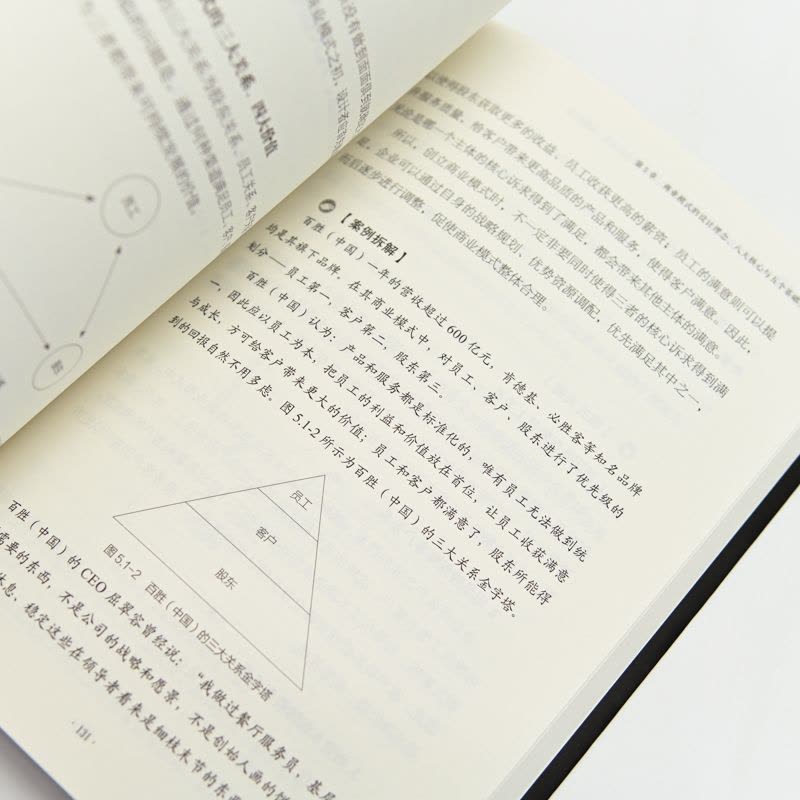 大关系、四大价值
员工
第5章 商业模式的设计理念：八大核心与五个基础
以使得股东获取更多的收益，员工收获更高的薪资；员工的满意则可以提
服务质量，给客户带来更高品质的产品和服务，使得客户满意。因此，
论是哪一个主体的核心诉求得到了满足，都会带来其他主体的满意。
所以，创立商业模式时，不一定非要同时使得三者的核心诉求得到满
足，企业可以通过自身的战略规划、优势资源调配，优先满足其中之一，
而后逐步进行调整，促使商业模式整体合理。
【案例拆解】
百胜（中国）一年的营收超过600亿元，肯德基、必胜客等知名品牌
均是其旗下品牌。在其商业模式中，对员工、客户、股东进行了优先级的
划分——员工第一，客户第二，股东第三。
百胜（中国）认为：产品和服务都是标准化的，唯有员工无法做到统
一，因此应以员工为本，把员工的利益和价值放在首位，让员工收获满意
与成长，方可给客户带来更大的价值；员工和客户都满意了，股东所能得
到的回报自然不用多虑。图5.1-2所示为百胜（中国）的三大关系金字塔。
员工
客户
股东
图5.1-2 百胜（中国）的三大关系金字塔
百胜（中国）的CEO屈翠容曾经说：“我做过餐厅服务员，基层
需要的东西，不是公司的战略和愿景，不是创始人画的饼
休息、稳定这些在领导者看来是细枝末节的东西
·131·